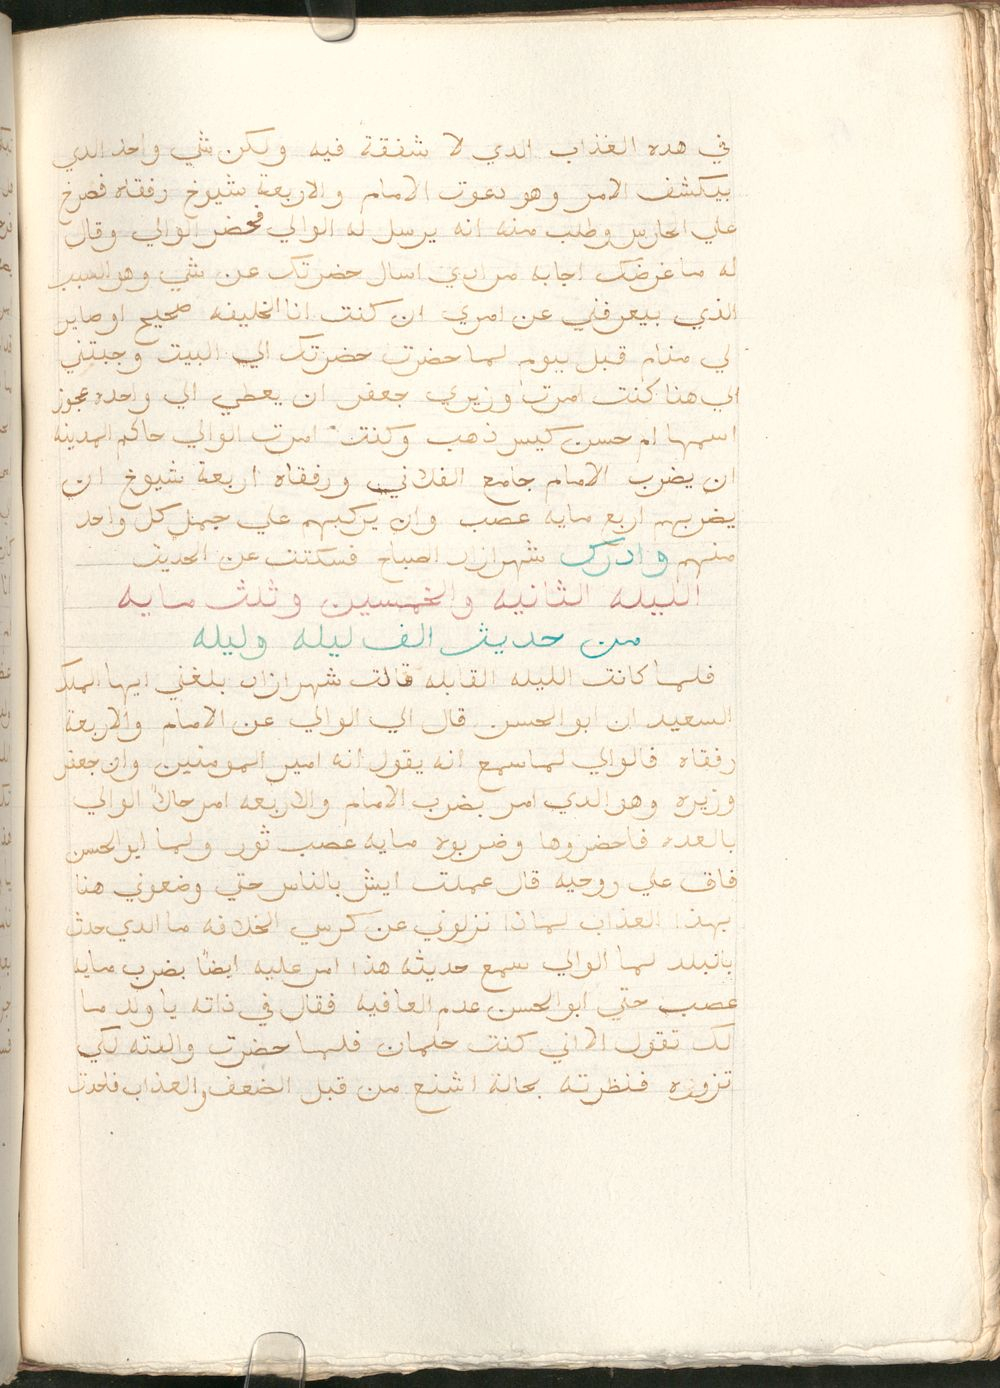 في هده العذاب الدي لا شفقة فيه ولكن شي واحد الدي
بيكشف الامر وهو دعوت الامام والاربعة شيوخ رفقاه فصرخ
علي الحارس وطلب منه انه يرسل له الوالي فحضر الوالي وقال
له ما غرضك اجابه مرادي اسال حضرتك عن شي وهو السبب
الذي بيعرفني عن امري ان كنت انا الخليفه صحيح او صاير
لي منام قبل بيوم لما حضرت حضرتك الي البيت وجبتني
الي هنا كنت امرت وزيري جعفر ان يعطي الي واحده عجوز
اسمها ام حسن كيس ذهب وكنت امرت الوالي حاكم المدينه
ان يضرب الامام جامع الفلاني ورفقاه اربعة شيوخ ان
يضربهم اربع مايه عصب وان يركبهم علي جمل كل واحد
منهم وادرك شهرازاد الصباح فسكتت عن الحديث
الليله الثانيه والخمسين وثلث مايه
من حديث الف ليله وليله
فلما كانت الليله القابله قالت شهرازاد بلغني ايها الملك
السعيد ان ابو الحسن قال الي الوالي عن الامام والاربعة
رفقاه فالوالي لما سمع انه يقول انه امير المومنين وان جعفر
وزيره وهو الدي امر بضرب الامام والاربعه امر حالاً الوالي
بالعده فاحضروها وضربوه مايه عصب ثور ولما ابو الحسن
فاق علي روحيه قال عملت ايش بالناس حتي وضعوني هنا
بهذا العذاب لماذا نزلوني عن كرسي الخلافه ما الدي حدث
بالبلد لما الوالي سمع حديثه هذا امر عليه ايضاً بضرب مايه
عصب حتي ابو الحسن عدم العافيه فقال في ذاته يا ولد ما
لك تقول الا اني كنت حلمان فلما حضرت والدته لكي
تزوره فنظرته بحالة اشنع من قبل الضعف والعذاب فاخدت